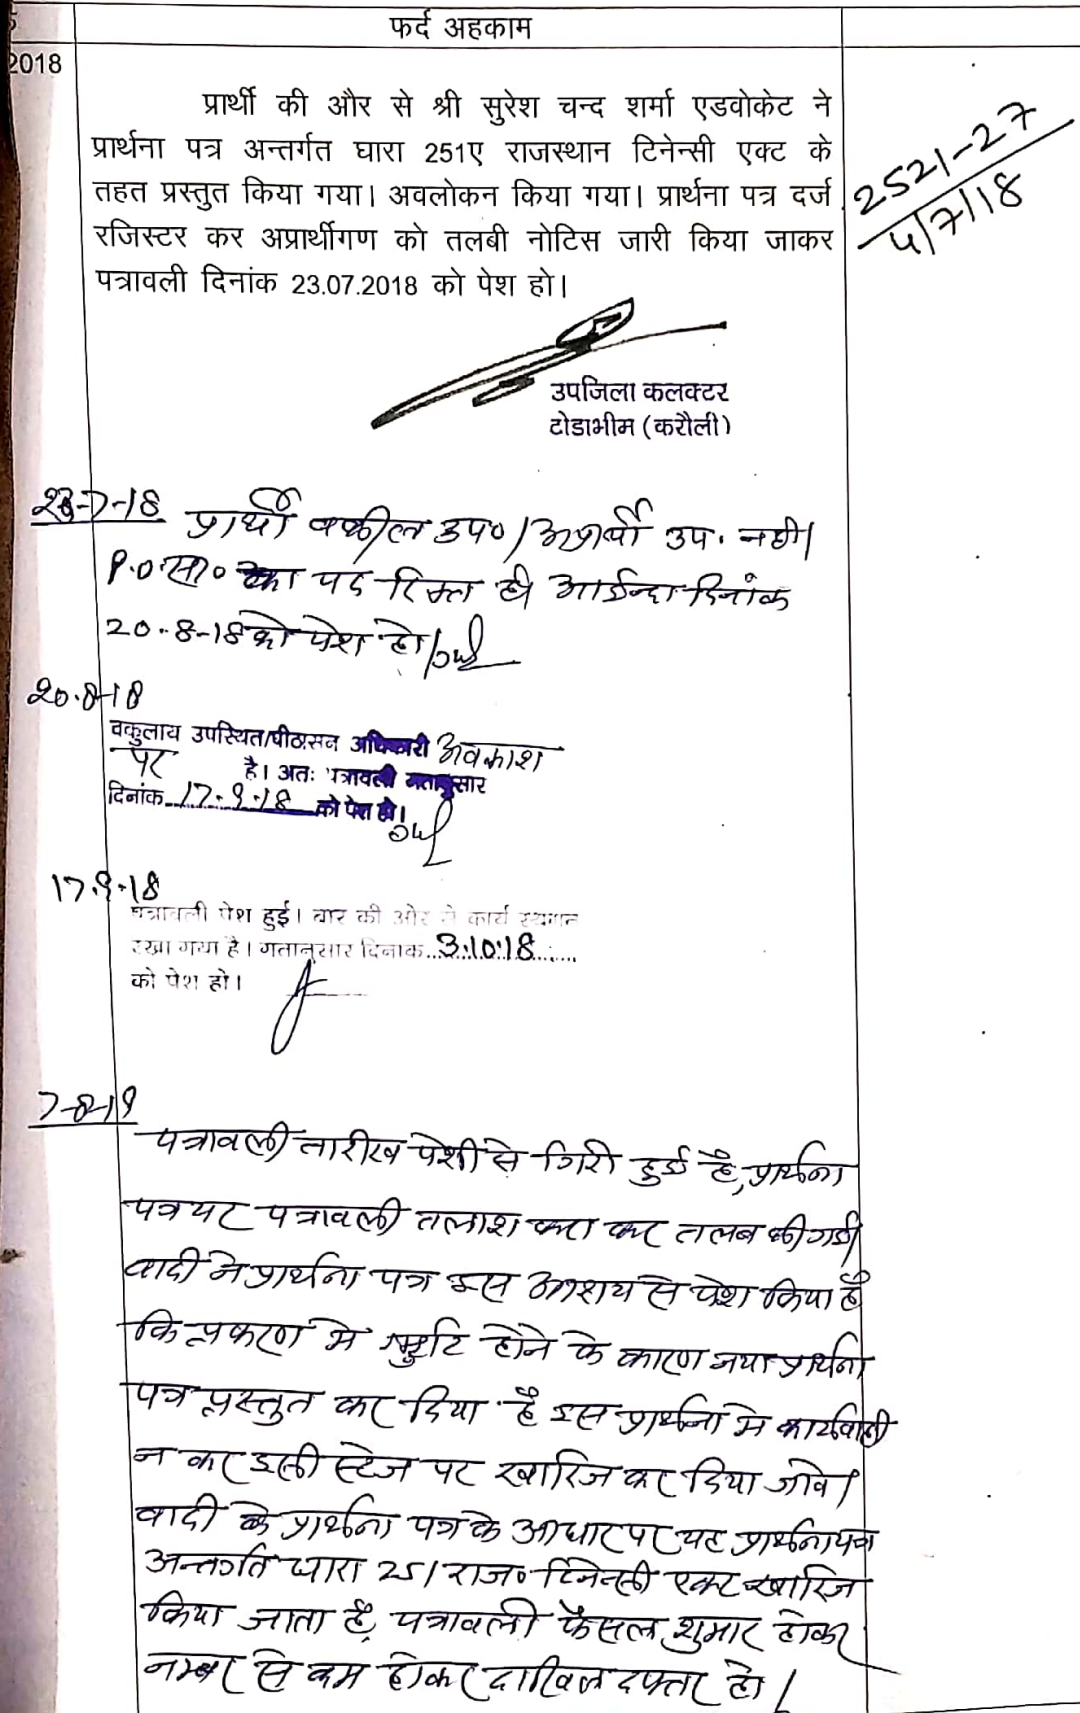 फर्द अहकाम
2018
प्रार्थी की और से श्री सुरेश चन्द शर्मा एडवोकेट ने
प्रार्थना पत्र अन्तर्गत घारा 251ए राजस्थान टिनेन्सी एक्ट के
तहत प्रस्तुत किया गया। अवलोकन किया गया। प्रार्थना पत्र दर्ज
रजिस्टर कर अप्रार्थीगण को तलबी नोटिस जारी किया जाकर
पत्रावली दिनांक 23.07.2018 को पेश हो।
2521-27
4/7/18
उपजिला कलक्टर
टोडाभीम (करौली)
23-7-18
प्रार्थी वकील उप०/अप्रार्थी उप. नही।
P.O.सा० का पद रिक्त है आईन्दा दिनांक
20.-8-18 को पेश हो।
20.8-18
वकुलाय उपस्थित/पीठासन अधिकारी अवकाश
पर है। अतः पत्रावली गतानुसार
दिनांक 17.9.18 को पेश हो।
17.9.18
पत्रावली पेश हुई। बार की ओर से कार्य स्थगन
रखा गया है। गतानुसार दिनाक...3.10.18......
को पेश हो।
7-8-19
पत्रावली तारीख पेशी से गिरी हुई है, प्रार्थना
पत्र पर पत्रावली तलाश करा कर तलब की गई।
वादी ने प्रार्थना पत्र इस आशय से पेश किया है
कि प्रकरण मे त्रुटि होने के कारण नया प्रार्थना
पत्र प्रस्तुत कर दिया है इस प्रार्थना मे कार्यवाही
न कर इसी स्टेज पर खारिज कर दिया जावे।
वादी के प्रार्थना पत्र के आधार पर यह प्रार्थना पत्र
अन्तर्गत धारा 251 राज० टिनेन्सी एक्ट खारिज
किया जाता है, पत्रावली फैसल शुमार होकर
नम्बर से कम होकर दाखिल दफ्तर हो।